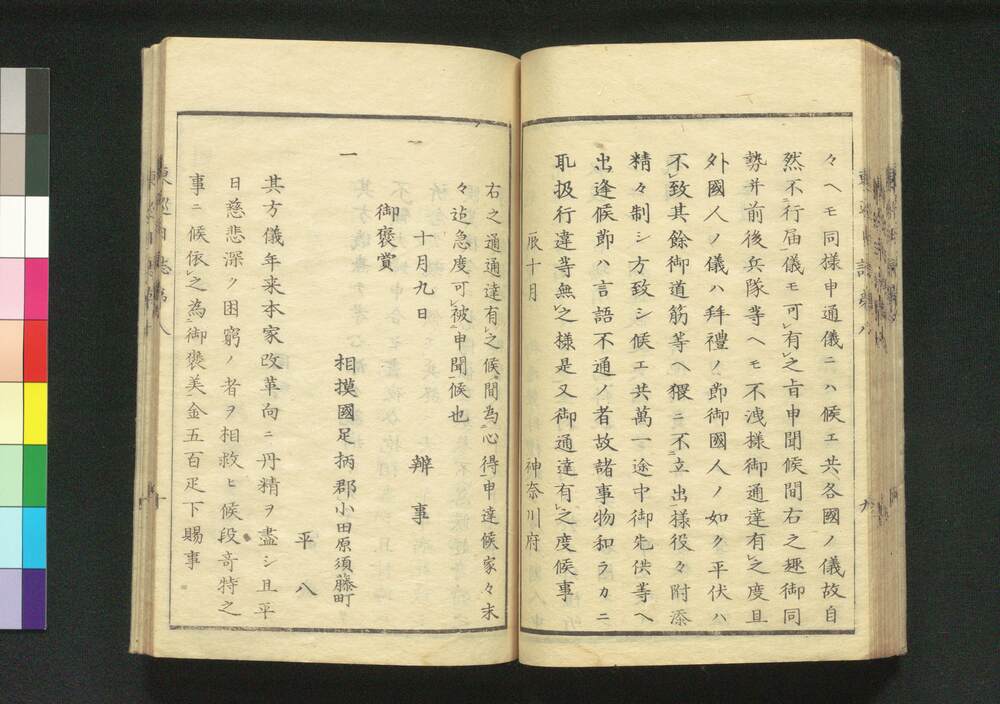 々ヘモ同様申通儀ニハ候エ共各國ノ儀故自
然不行届儀モ可有之旨申聞候間右之趣御同
勢并前後兵隊等ヘモ不洩様御通達有之度且
外國人ノ儀ハ拜禮ノ節御國人ノ如ク平伏ハ
不致其餘御道筋等ヘ猥ニ不立出様役々附添
精々制シ方致シ候エ共萬一途中御先供等ヘ
出逢候節ハ言語不通ノ者故諸事物和ラカニ
取扱行違等無之様是又御通達有之度候事
辰十月 神奈川府
右之通通達有之候間為心得申達候家々末
々迠急度可被申聞候也
十月九日 辨事
一 御褒賞
相摸國足柄郡小田原須藤町
平八
其方儀年来本家改革向ニ丹精ヲ盡シ且平
日慈悲深ク困窮ノ者ヲ相救ヒ候段奇特之
事ニ候依之為御褒美金五百疋下賜事